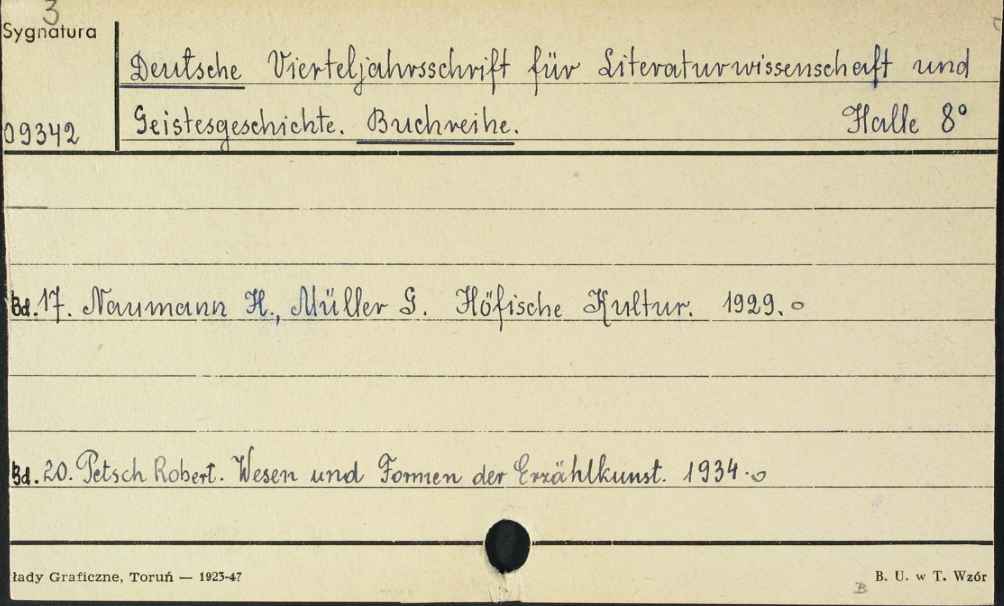 3
Sygnatura
Deutsche Vierteljahrsschrift für Literaturwissenschaft und
09342 Geistesgeschichte. Buchreihe. Halle 8°
Bd. 17. Naumann H., Müller G. Höfische Kultur. 1929.
Bd. 20. Petsch Robert. Wesen und Formen der Erzählkunst. 1934.
łady Graficzne, Toruń — 1923-47 B. U. w T. Wzór
B